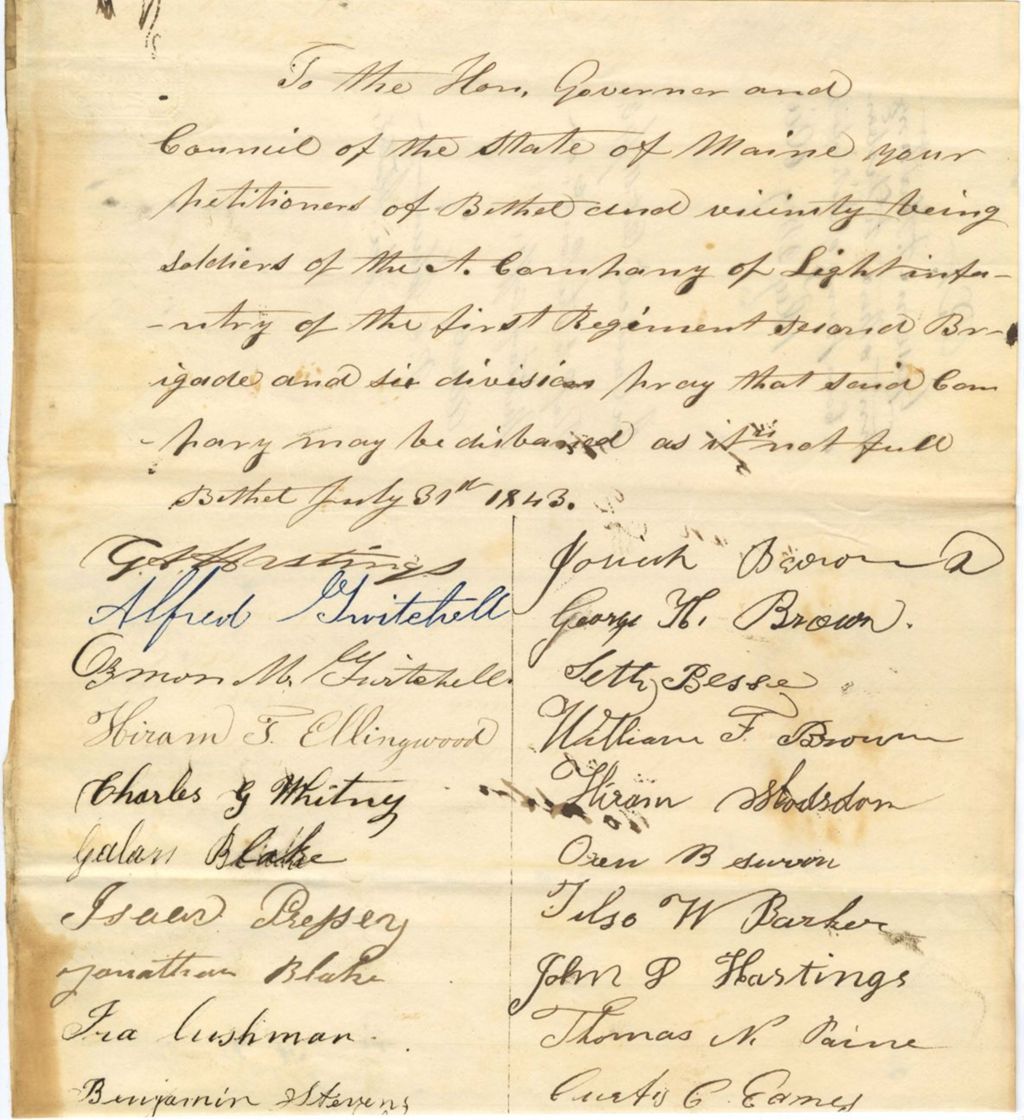 To the Hon, Governer and
Council of the State of Maine your
petitioners of Bethel and vicinity being
soldiers of the A. Company of Light infa-
-ntry of the first Regiment second Br-
igade and six division pray that said Com
-pany may be disbaned as it is not full
Bethel July 31st 1843.
Hastings
Alfred Twitchell
Ozmon M. Twitchell
Hiram F. Ellingwood
Charles G Whitney
Galan Blake
Isaac Pressey
Jonathan Blake
Ira Cushman
Benjamin Stevens
Josiah Brown 2
George H. Brown.
Seth Besse
William F. Brown
Hiram Hodsdon
Oren B
Tilso W Parker
John D Hastings
Thomas N. Paine
Curtis C. Eames